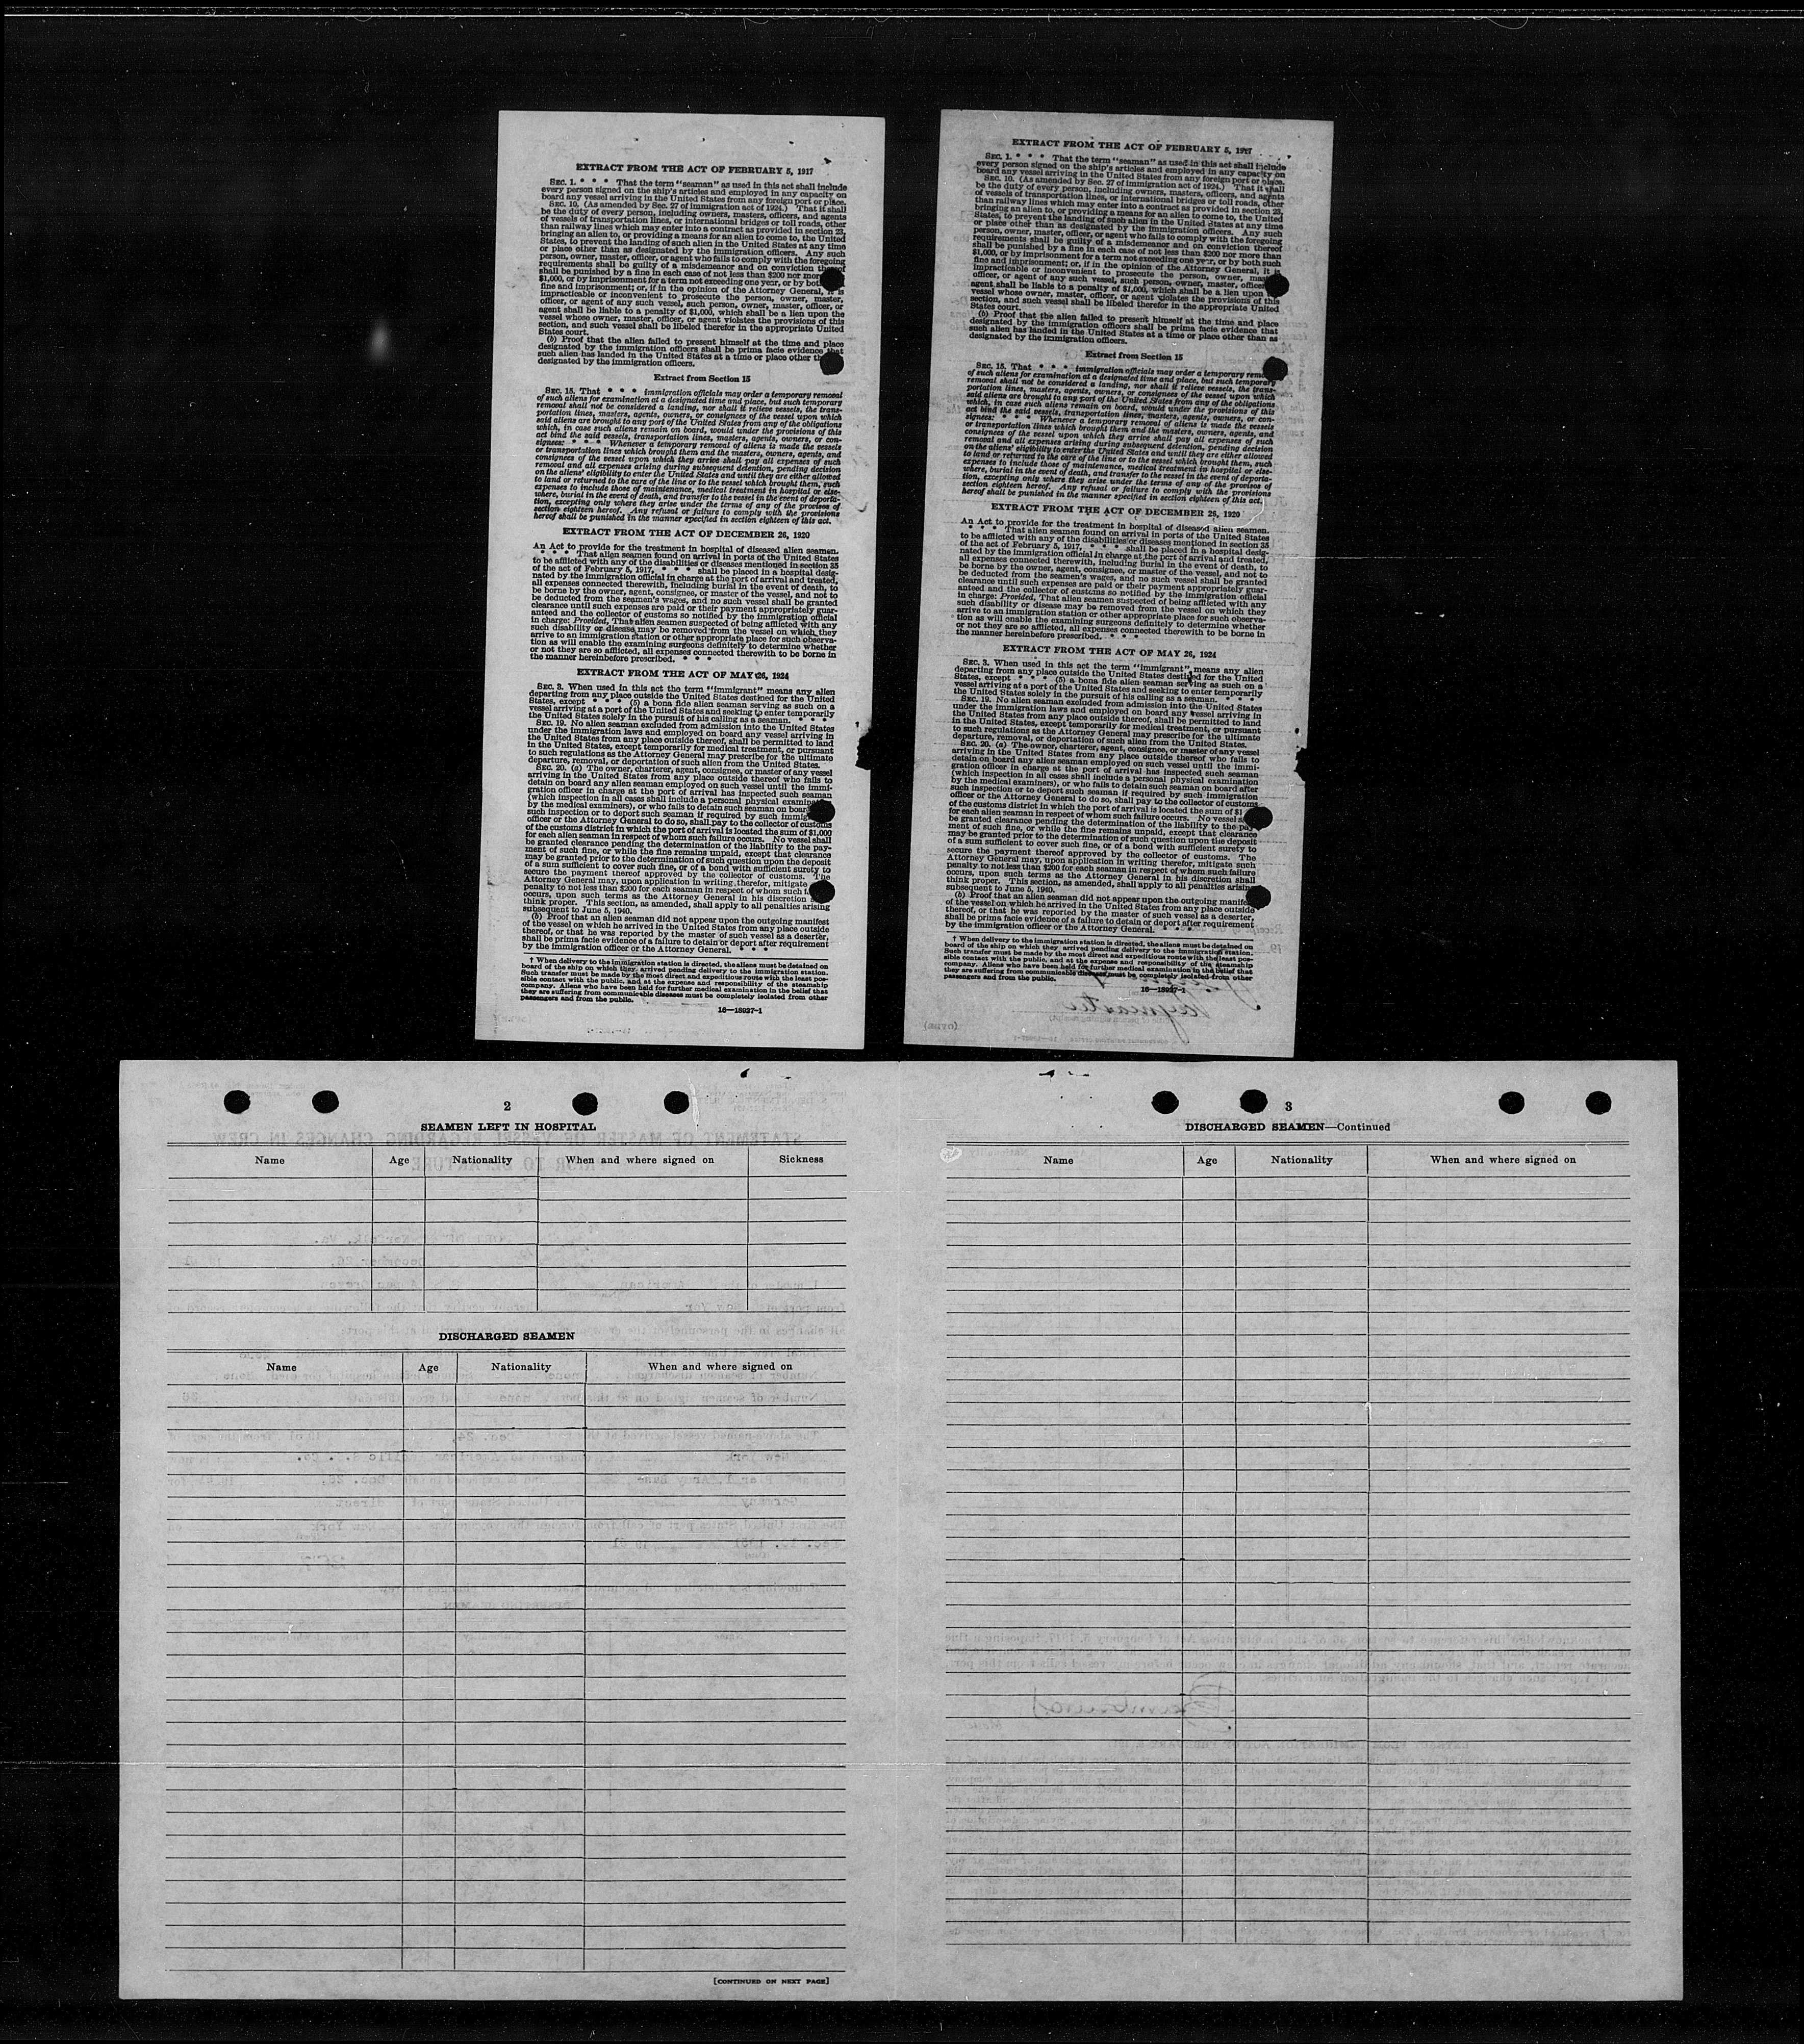 EXTRACT FROM THE ACT OF FEBRUARY 5, 1917
SEC. 1. * * * That the term "seaman" as used in this act shall include
every person signed on the ship's articles and employed in any capacity on
board any vessel arriving in the United States from any foreign port or place.
SEC. 10. (As amended by Sec. 27 of immigration act of 1924.) That it shall
be the duty of every person, including owners, masters, officers, and agents
of vessels of transportation lines, or international bridges or toll roads, other
than railway lines which may enter into a contract as provided in section 23,
bringing an alien to, or providing a means for an alien to come to, the United
States, to prevent the landing of such alien in the United States at any time
or place other than as designated by the immigration officers. Any such
person, owner, master, officer, or agent who fails to comply with the foregoing
requirements shall be guilty of a misdemeanor and on conviction thereof
shall be punished by a fine in each case of not less than $200 nor more
$1,000, or by imprisonment for a term not exceeding one year, or by both
fine and imprisonment; or, if in the opinion of the Attorney General, it is
impracticable or inconvenient to prosecute the person, owner, master,
officer, or agent of any such vessel, such person, owner, master, officer, or
agent shall be liable to a penalty of $1,000, which shall be a lien upon the
vessel whose owner, master, officer, or agent violates the provisions of this
section, and such vessel shall be libeled therefor in the appropriate United
States court.
(b) Proof that the alien failed to present himself at the time and place
designated by the immigration officers shall be prima facie evidence that
such alien has landed in the United States at a time or place other
designated by the immigration officers.
Extract from Section 15
SEC. 15. That * * * immigration officials may order a temporary removal
of such aliens for examination at a designated time and place, but such temporary
removal shall not be considered a landing, nor shall it relieve vessels, the trans-
portation lines, masters, agents, owners, or consignees of the vessel upon which
said aliens are brought to any port of the United States from any of the obligations
which, in case such aliens remain on board, would under the provisions of this
act bind the said vessels, transportation lines, masters, agents, owners, or con-
signees: * * * Whenever a temporary removal of aliens is made the vessels
or transportation lines which brought them and the masters, owners, agents, and
consignees of the vessel upon which they arrive shall pay all expenses of such
removal and all expenses arising during subsequent detention, pending decision
on the aliens' eligibility to enter the United States and until they are either allowed
to land or returned to the care of the line or to the vessel which brought them, such
expenses to include those of maintenance, medical treatment in hospital or else-
where, burial in the event of death, and transfer to the vessel in the event of deporta-
tion, excepting only where they arise under the terms of any of the provisos of
section eighteen hereof. Any refusal or failure to comply with the provisions
hereof shall be punished in the manner specified in section eighteen of this act.
EXTRACT FROM THE ACT OF DECEMBER 26, 1920
An Act to provide for the treatment in hospital of diseased alien seamen.
* * * That alien seamen found on arrival in ports of the United States
to be afflicted with any of the disabilities or diseases mentioned in section 35
of the act of February 5, 1917, * * * shall be placed in a hospital desig-
nated by the immigration official in charge at the port of arrival and treated,
all expenses connected therewith, including burial in the event of death, to
be borne by the owner, agent, consignee, or master of the vessel, and not to
be deducted from the seamen's wages, and no such vessel shall be granted
clearance until such expenses are paid or their payment appropriately guar-
anteed and the collector of customs so notified by the immigration official
in charge: Provided, That alien seamen suspected of being afflicted with any
such disability or disease may be removed from the vessel on which they
arrive to an immigration station or other appropriate place for such observa-
tion as will enable the examining surgeons definitely to determine whether
or not they are so afflicted, all expenses connected therewith to be borne in
the manner hereinbefore prescribed. * * *
EXTRACT FROM THE ACT OF MAY 26, 1924
SEC. 3. When used in this act the term "immigrant" means any alien
departing from any place outside the United States destined for the United
States, except * * * (5) a bona fide alien seaman serving as such on a
vessel arriving at a port of the United States and seeking to enter temporarily
the United States solely in the pursuit of his calling as a seaman. * * *
SEC. 19. No alien seaman excluded from admission into the United States
under the immigration laws and employed on board any vessel arriving in
the United States from any place outside thereof, shall be permitted to land
in the United States, except temporarily for medical treatment, or pursuant
to such regulations as the Attorney General may prescribe for the ultimate
departure, removal, or deportation of such alien from the United States.
SEC. 20. (a) The owner, charterer, agent, consignee, or master of any vessel
arriving in the United States from any place outside thereof who fails to
detain on board any alien seaman employed on such vessel until the immi-
gration officer in charge at the port of arrival has inspected such seaman
(which inspection in all cases shall include a personal physical examination
by the medical examiners), or who fails to detain such seaman on board
such inspection or to deport such seaman if required by such immig
officer or the Attorney General to do so, shall pay to the collector of customs
of the customs district in which the port of arrival is located the sum of $1,000
for each alien seaman in respect of whom such failure occurs. No vessel shall
be granted clearance pending the determination of the liability to the pay-
ment of such fine, or while the fine remains unpaid, except that clearance
may be granted prior to the determination of such question upon the deposit
of a sum sufficient to cover such fine, or of a bond with sufficient surety to
secure the payment thereof approved by the collector of customs. The
Attorney General may, upon application in writing therefor, mitigate
penalty to not less than $200 for each seaman in respect of whom such
occurs, upon such terms as the Attorney General in his discretion
think proper. This section, as amended, shall apply to all penalties arising
subsequent to June 5, 1940.
(b) Proof that an alien seaman did not appear upon the outgoing manifest
of the vessel on which he arrived in the United States from any place outside
thereof, or that he was reported by the master of such vessel as a deserter,
shall be prima facie evidence of a failure to detain or deport after requirement
by the immigration officer or the Attorney General. * * *
† When delivery to the immigration station is directed, the aliens must be detained on
board of the ship on which they arrived pending delivery to the immigration station.
Such transfer must be made by the most direct and expeditious route with the least pos-
sible contact with the public, and at the expense and responsibility of the steamship
company. Aliens who have been held for further medical examination in the belief that
they are suffering from communicable diseases must be completely isolated from other
passengers and from the public.
16—18927-1
EXTRACT FROM THE ACT OF FEBRUARY 5, 1917
SEC. 1. * * * That the term "seaman" as used in this act shall include
every person signed on the ship's articles and employed in any capacity on
board any vessel arriving in the United States from any foreign port or place.
SEC. 10. (As amended by Sec. 27 of immigration act of 1924.) That it shall
be the duty of every person, including owners, masters, officers, and agents
of vessels of transportation lines, or international bridges or toll roads, other
than railway lines which may enter into a contract as provided in section 23,
bringing an alien to, or providing a means for an alien to come to, the United
States, to prevent the landing of such alien in the United States at any time
or place other than as designated by the immigration officers. Any such
person, owner, master, officer, or agent who fails to comply with the foregoing
requirements shall be guilty of a misdemeanor and on conviction thereof
shall be punished by a fine in each case of not less than $200 nor more than
$1,000, or by imprisonment for a term not exceeding one year, or by both such
fine and imprisonment; or, if in the opinion of the Attorney General, it is
impracticable or inconvenient to prosecute the person, owner, master,
officer, or agent of any such vessel, such person, owner, master, officer
agent shall be liable to a penalty of $1,000, which shall be a lien upon
vessel whose owner, master, officer, or agent violates the provisions of this
section, and such vessel shall be libeled therefor in the appropriate United
States court.
(b) Proof that the alien failed to present himself at the time and place
designated by the immigration officers shall be prima facie evidence that
such alien has landed in the United States at a time or place other than as
designated by the immigration officers.
Extract from Section 15
SEC. 15. That * * * immigration officials may order a temporary remov
of such aliens for examination at a designated time and place, but such temporary
removal shall not be considered a landing, nor shall it relieve vessels, the trans-
portation lines, masters, agents, owners, or consignees of the vessel upon which
said aliens are brought to any port of the United States from any of the obligations
which, in case such aliens remain on board, would under the provisions of this
act bind the said vessels, transportation lines, masters, agents, owners, or con-
signees: * * * Whenever a temporary removal of aliens is made the vessels
or transportation lines which brought them and the masters, owners, agents, and
consignees of the vessel upon which they arrive shall pay all expenses of such
removal and all expenses arising during subsequent detention, pending decision
on the aliens' eligibility to enter the United States and until they are either allowed
to land or returned to the care of the line or to the vessel which brought them, such
expenses to include those of maintenance, medical treatment in hospital or else-
where, burial in the event of death, and transfer to the vessel in the event of deporta-
tion, excepting only where they arise under the terms of any of the provisos of
section eighteen hereof. Any refusal or failure to comply with the provisions
hereof shall be punished in the manner specified in section eighteen of this act.
EXTRACT FROM THE ACT OF DECEMBER 26, 1920
An Act to provide for the treatment in hospital of diseased alien seamen.
* * * That alien seamen found on arrival in ports of the United States
to be afflicted with any of the disabilities or diseases mentioned in section 35
of the act of February 5, 1917, * * * shall be placed in a hospital desig-
nated by the immigration official in charge at the port of arrival and treated,
all expenses connected therewith, including burial in the event of death, to
be borne by the owner, agent, consignee, or master of the vessel, and not to
be deducted from the seamen's wages, and no such vessel shall be granted
clearance until such expenses are paid or their payment appropriately guar-
anteed and the collector of customs so notified by the immigration official
in charge: Provided, That alien seamen suspected of being afflicted with any
such disability or disease may be removed from the vessel on which they
arrive to an immigration station or other appropriate place for such observa-
tion as will enable the examining surgeons definitely to determine whether
or not they are so afflicted, all expenses connected therewith to be borne in
the manner hereinbefore prescribed. * * *
EXTRACT FROM THE ACT OF MAY 26, 1924
SEC. 3. When used in this act the term "immigrant" means any alien
departing from any place outside the United States destined for the United
States, except * * * (5) a bona fide alien seaman serving as such on a
vessel arriving at a port of the United States and seeking to enter temporarily
the United States solely in the pursuit of his calling as a seaman. * * *
SEC. 19. No alien seaman excluded from admission into the United States
under the immigration laws and employed on board any vessel arriving in
the United States from any place outside thereof, shall be permitted to land
in the United States, except temporarily for medical treatment, or pursuant
to such regulations as the Attorney General may prescribe for the ultimate
departure, removal, or deportation of such alien from the United States.
SEC. 20. (a) The owner, charterer, agent, consignee, or master of any vessel
arriving in the United States from any place outside thereof who fails to
detain on board any alien seaman employed on such vessel until the immi-
gration officer in charge at the port of arrival has inspected such seaman
(which inspection in all cases shall include a personal physical examination
by the medical examiners), or who fails to detain such seaman on board after
such inspection or to deport such seaman if required by such immigration
officer or the Attorney General to do so, shall pay to the collector of customs
of the customs district in which the port of arrival is located the sum of $1
for each alien seaman in respect of whom such failure occurs. No vessel
be granted clearance pending the determination of the liability to the pay-
ment of such fine, or while the fine remains unpaid, except that clearance
may be granted prior to the determination of such question upon the deposit
of a sum sufficient to cover such fine, or of a bond with sufficient surety to
secure the payment thereof approved by the collector of customs. The
Attorney General may, upon application in writing therefor, mitigate such
penalty to not less than $200 for each seaman in respect of whom such failure
occurs, upon such terms as the Attorney General in his discretion shall
think proper. This section, as amended, shall apply to all penalties arising
subsequent to June 5, 1940.
(b) Proof that an alien seaman did not appear upon the outgoing manifest
of the vessel on which he arrived in the United States from any place outside
thereof, or that he was reported by the master of such vessel as a deserter,
shall be prima facie evidence of a failure to detain or deport after requirement
by the immigration officer or the Attorney General. * * *
† When delivery to the immigration station is directed, the aliens must be detained on
board of the ship on which they arrived pending delivery to the immigration station.
Such transfer must be made by the most direct and expeditious route with the least pos-
sible contact with the public, and at the expense and responsibility of the steamship
company. Aliens who have been held for further medical examination in the belief that
they are suffering from communicable diseases must be completely isolated from other
passengers and from the public.
16—18927-1
2
SEAMEN LEFT IN HOSPITAL
Name Age Nationality When and where signed on Sickness
DISCHARGED SEAMEN
Name Age Nationality When and where signed on
[CONTINUED ON NEXT PAGE]
3
DISCHARGED SEAMEN—Continued
Name Age Nationality When and where signed on